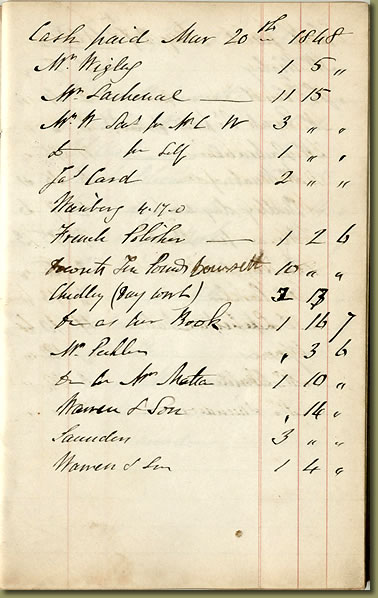 Cash paid Mar 20th 1848
Mr Wigley 1 5 "
Mr Lachenal — 11 15
Mr W for Mr C W 3 " "
Do for Self 1 " "
Jas Card 2 " "
4-17-0
French Polisher — 1 2 6
Ten Pounds 10 " "
Chidley (Day work)
Do as per Book 1 16 7
Mr , 3 6
Do for Mr 1 10 "
Warren & Son , 14 "
Saunders 3 " "
Warren & Son 1 4 "